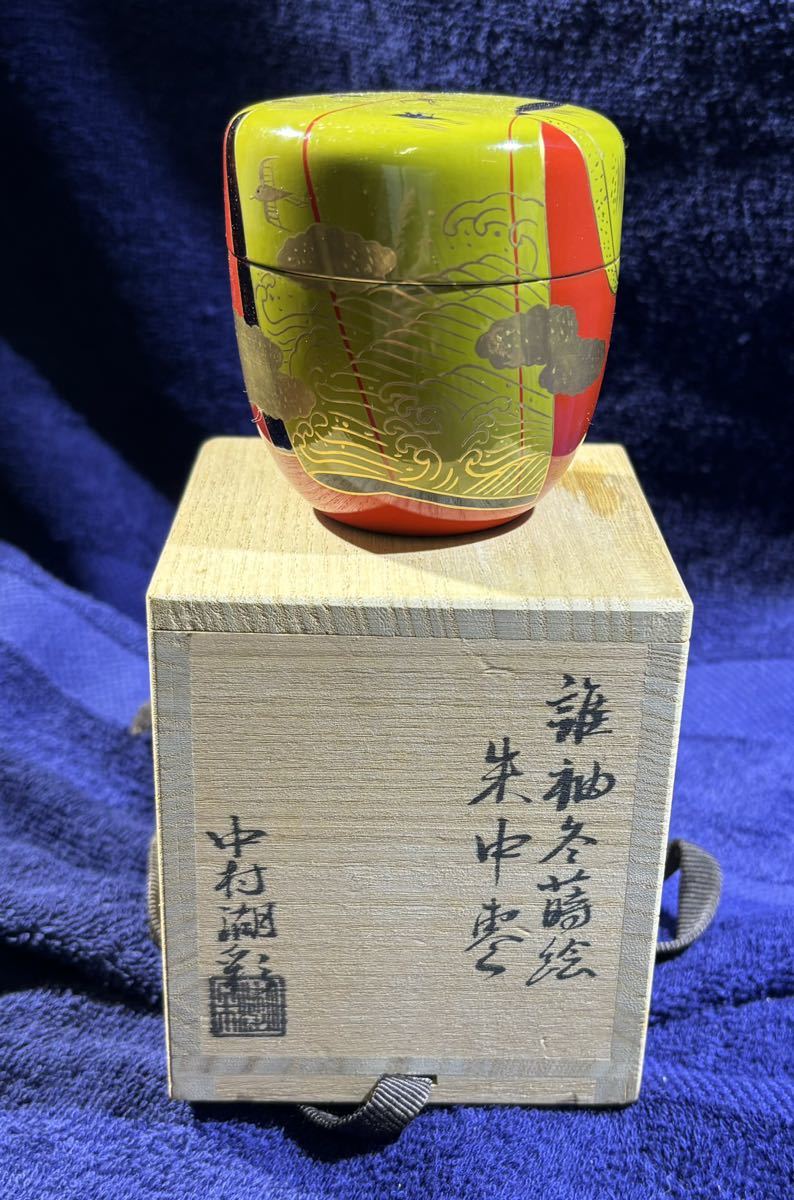 誰袖冬蒔絵
朱中棗
中村湖彩